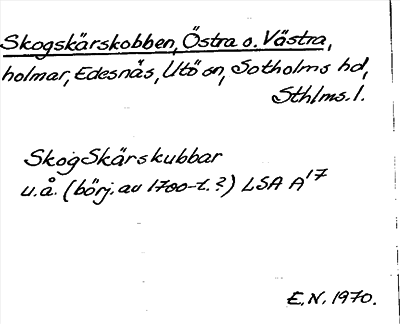 Skogskärskobben, Östra o. Västra,
holmar, Edesnäs, Utö sn, Sotholms hd,
Sthlms. l.
SkogSkärskubbar
u.å. (börj. av 1700-t.?) LSA A¹⁷
E.N. 1970.